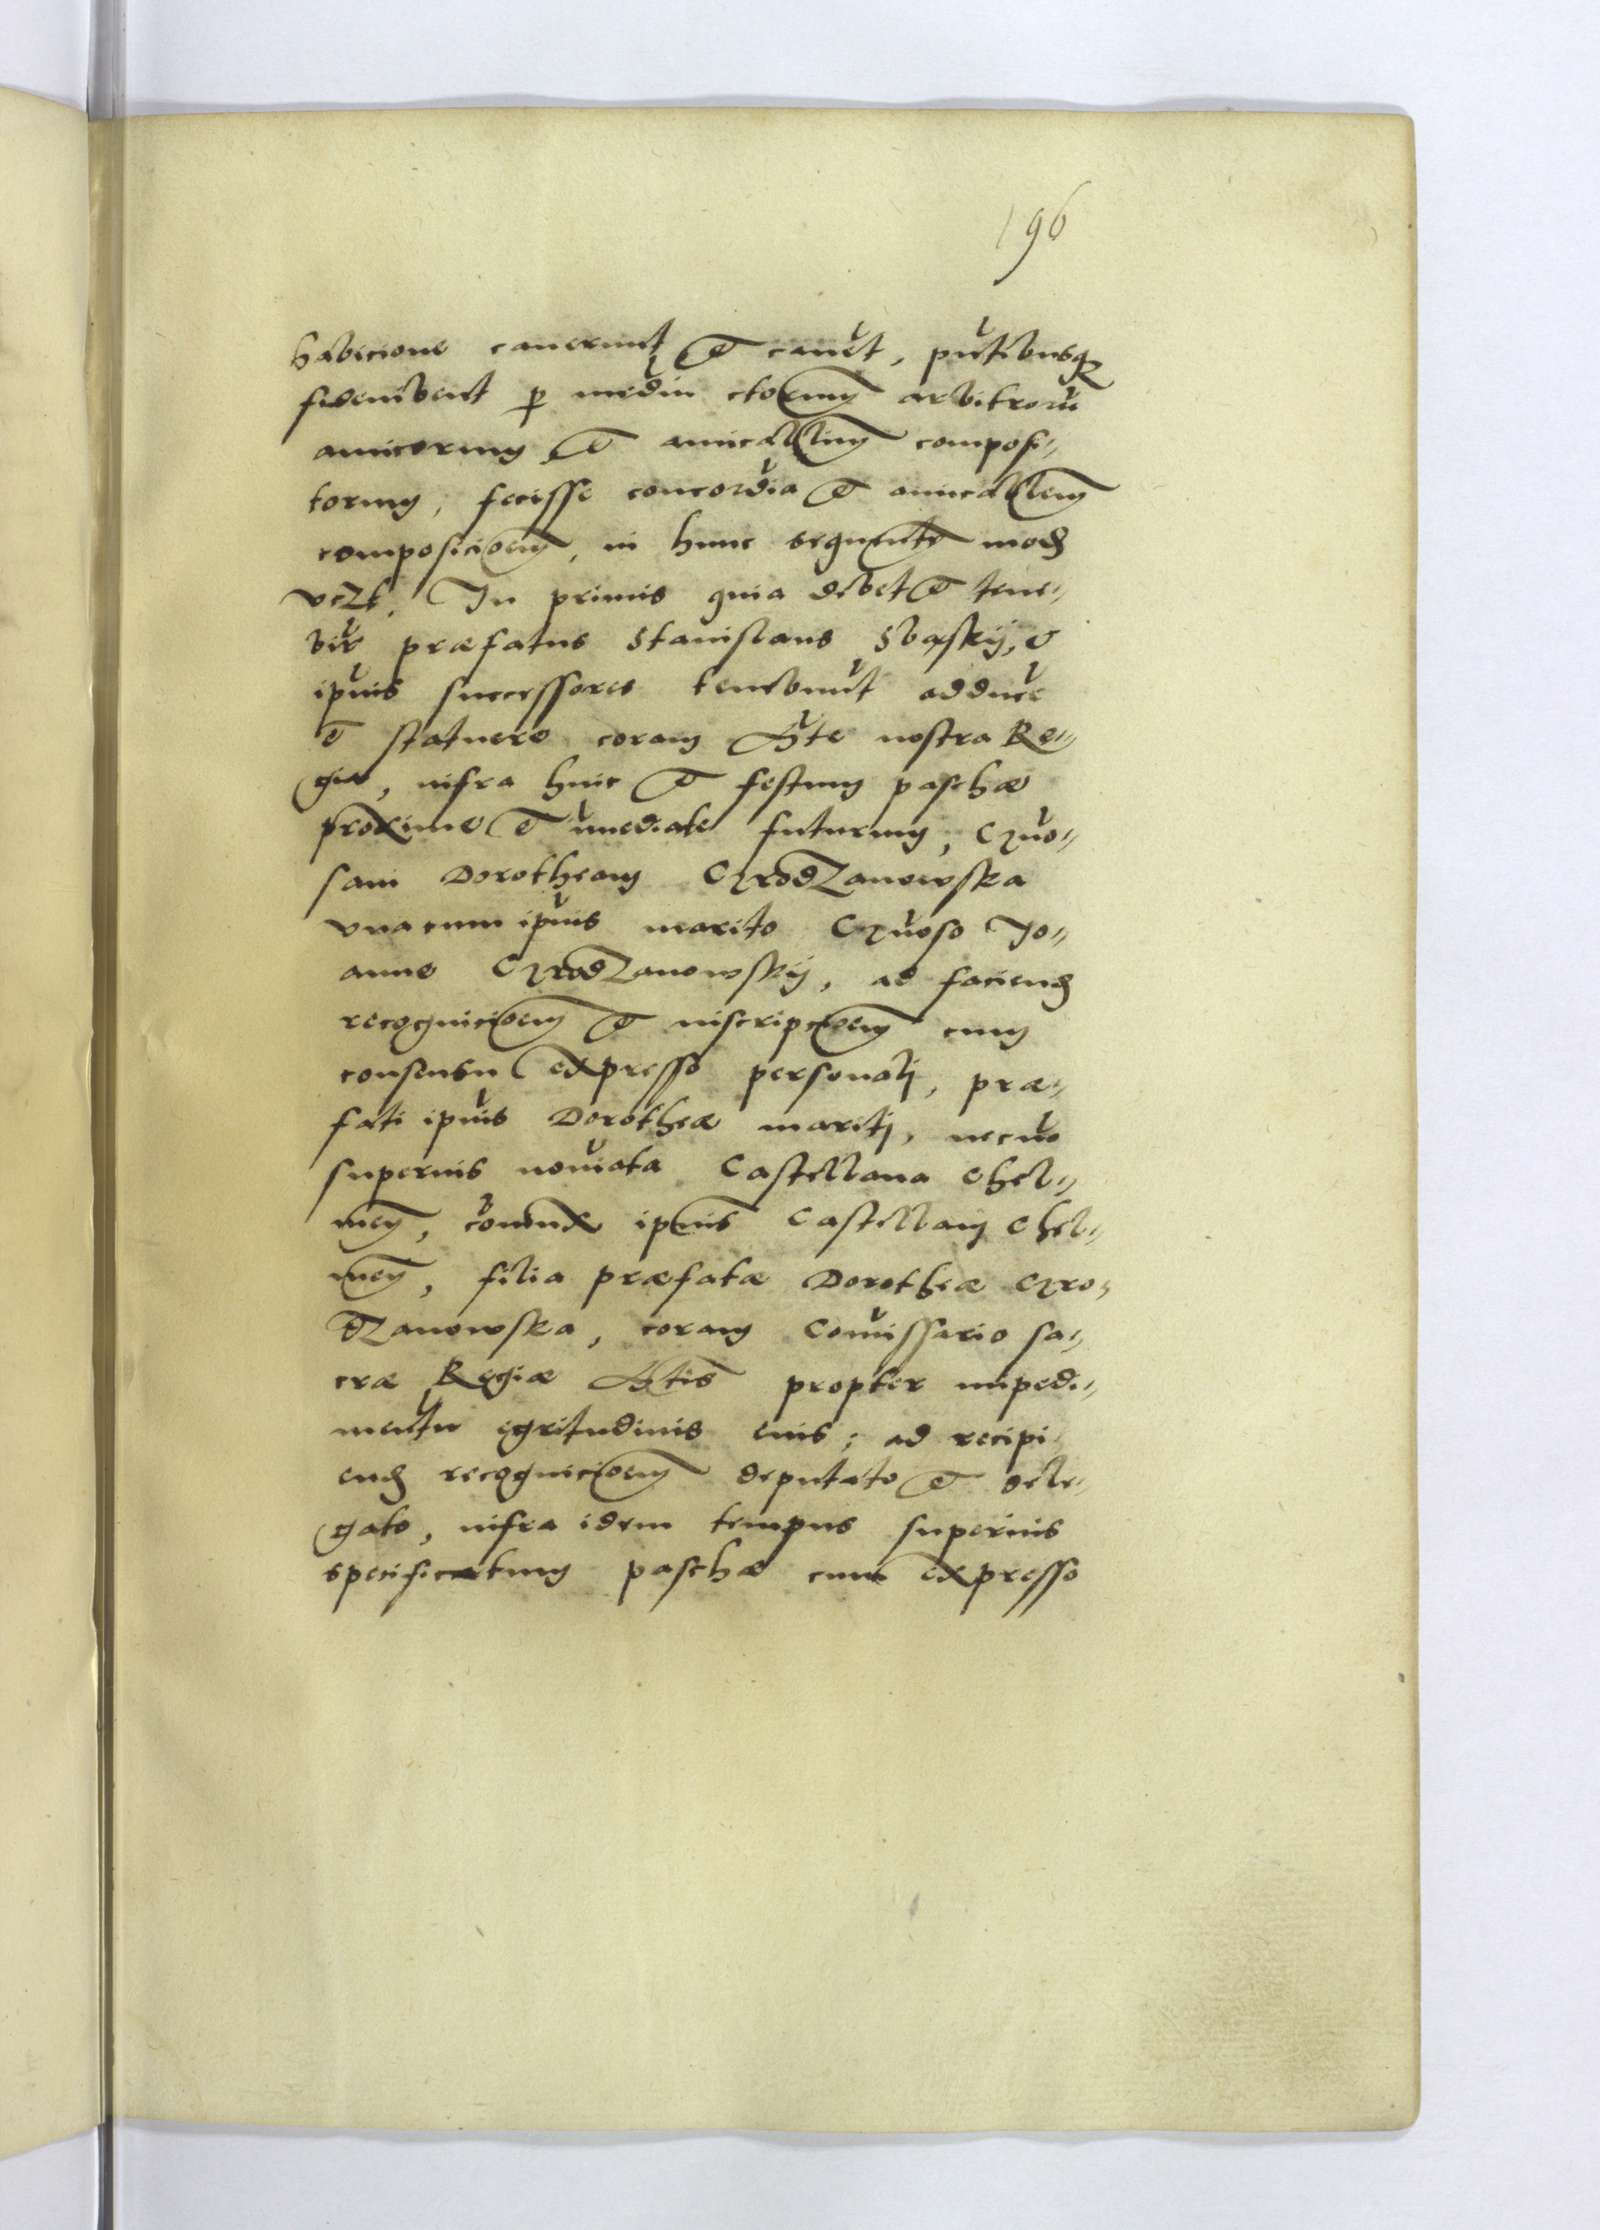 196
habicione cauerunt et cauet, pntibusq
fideiubent p mediu ctorum arbitroru
amicorum et amicabilium composi=
torum, fecisse concordia et amicabilem
composicioem, in hunc seguente mod
vczt. In primis quia debet et tene=
bir præfatus Stanislaus Sbąskij, et
ipius successores tenebunt adduce
et statuere coram Mte nostra Re=
gia, infra hinc et festum paschæ
proxime et imediate futurum, Gnro=
sam Dorotheam GrodZanowska
vna cum ipius marito Gnroso Jo=
anne GrodZanowskij, ad faciend
recognicioem et inscripcioem cum
consensu expresso personali, præ=
fati ipius Dorotheæ mariti, necno
superius noiata Castellana Chel=
men, coniunx ipius Castellani Chel=
men, filia præfatæ Dorotheæ Gro=
dZanowska, coram Comissario sa=
cræ Regiæ Mtis propter impedi=
mentu egritudinis eius; ad recipi
end recognicioem deputato et dele=
gato, infra idem tempus superius
specificatum paschæ cum expresso